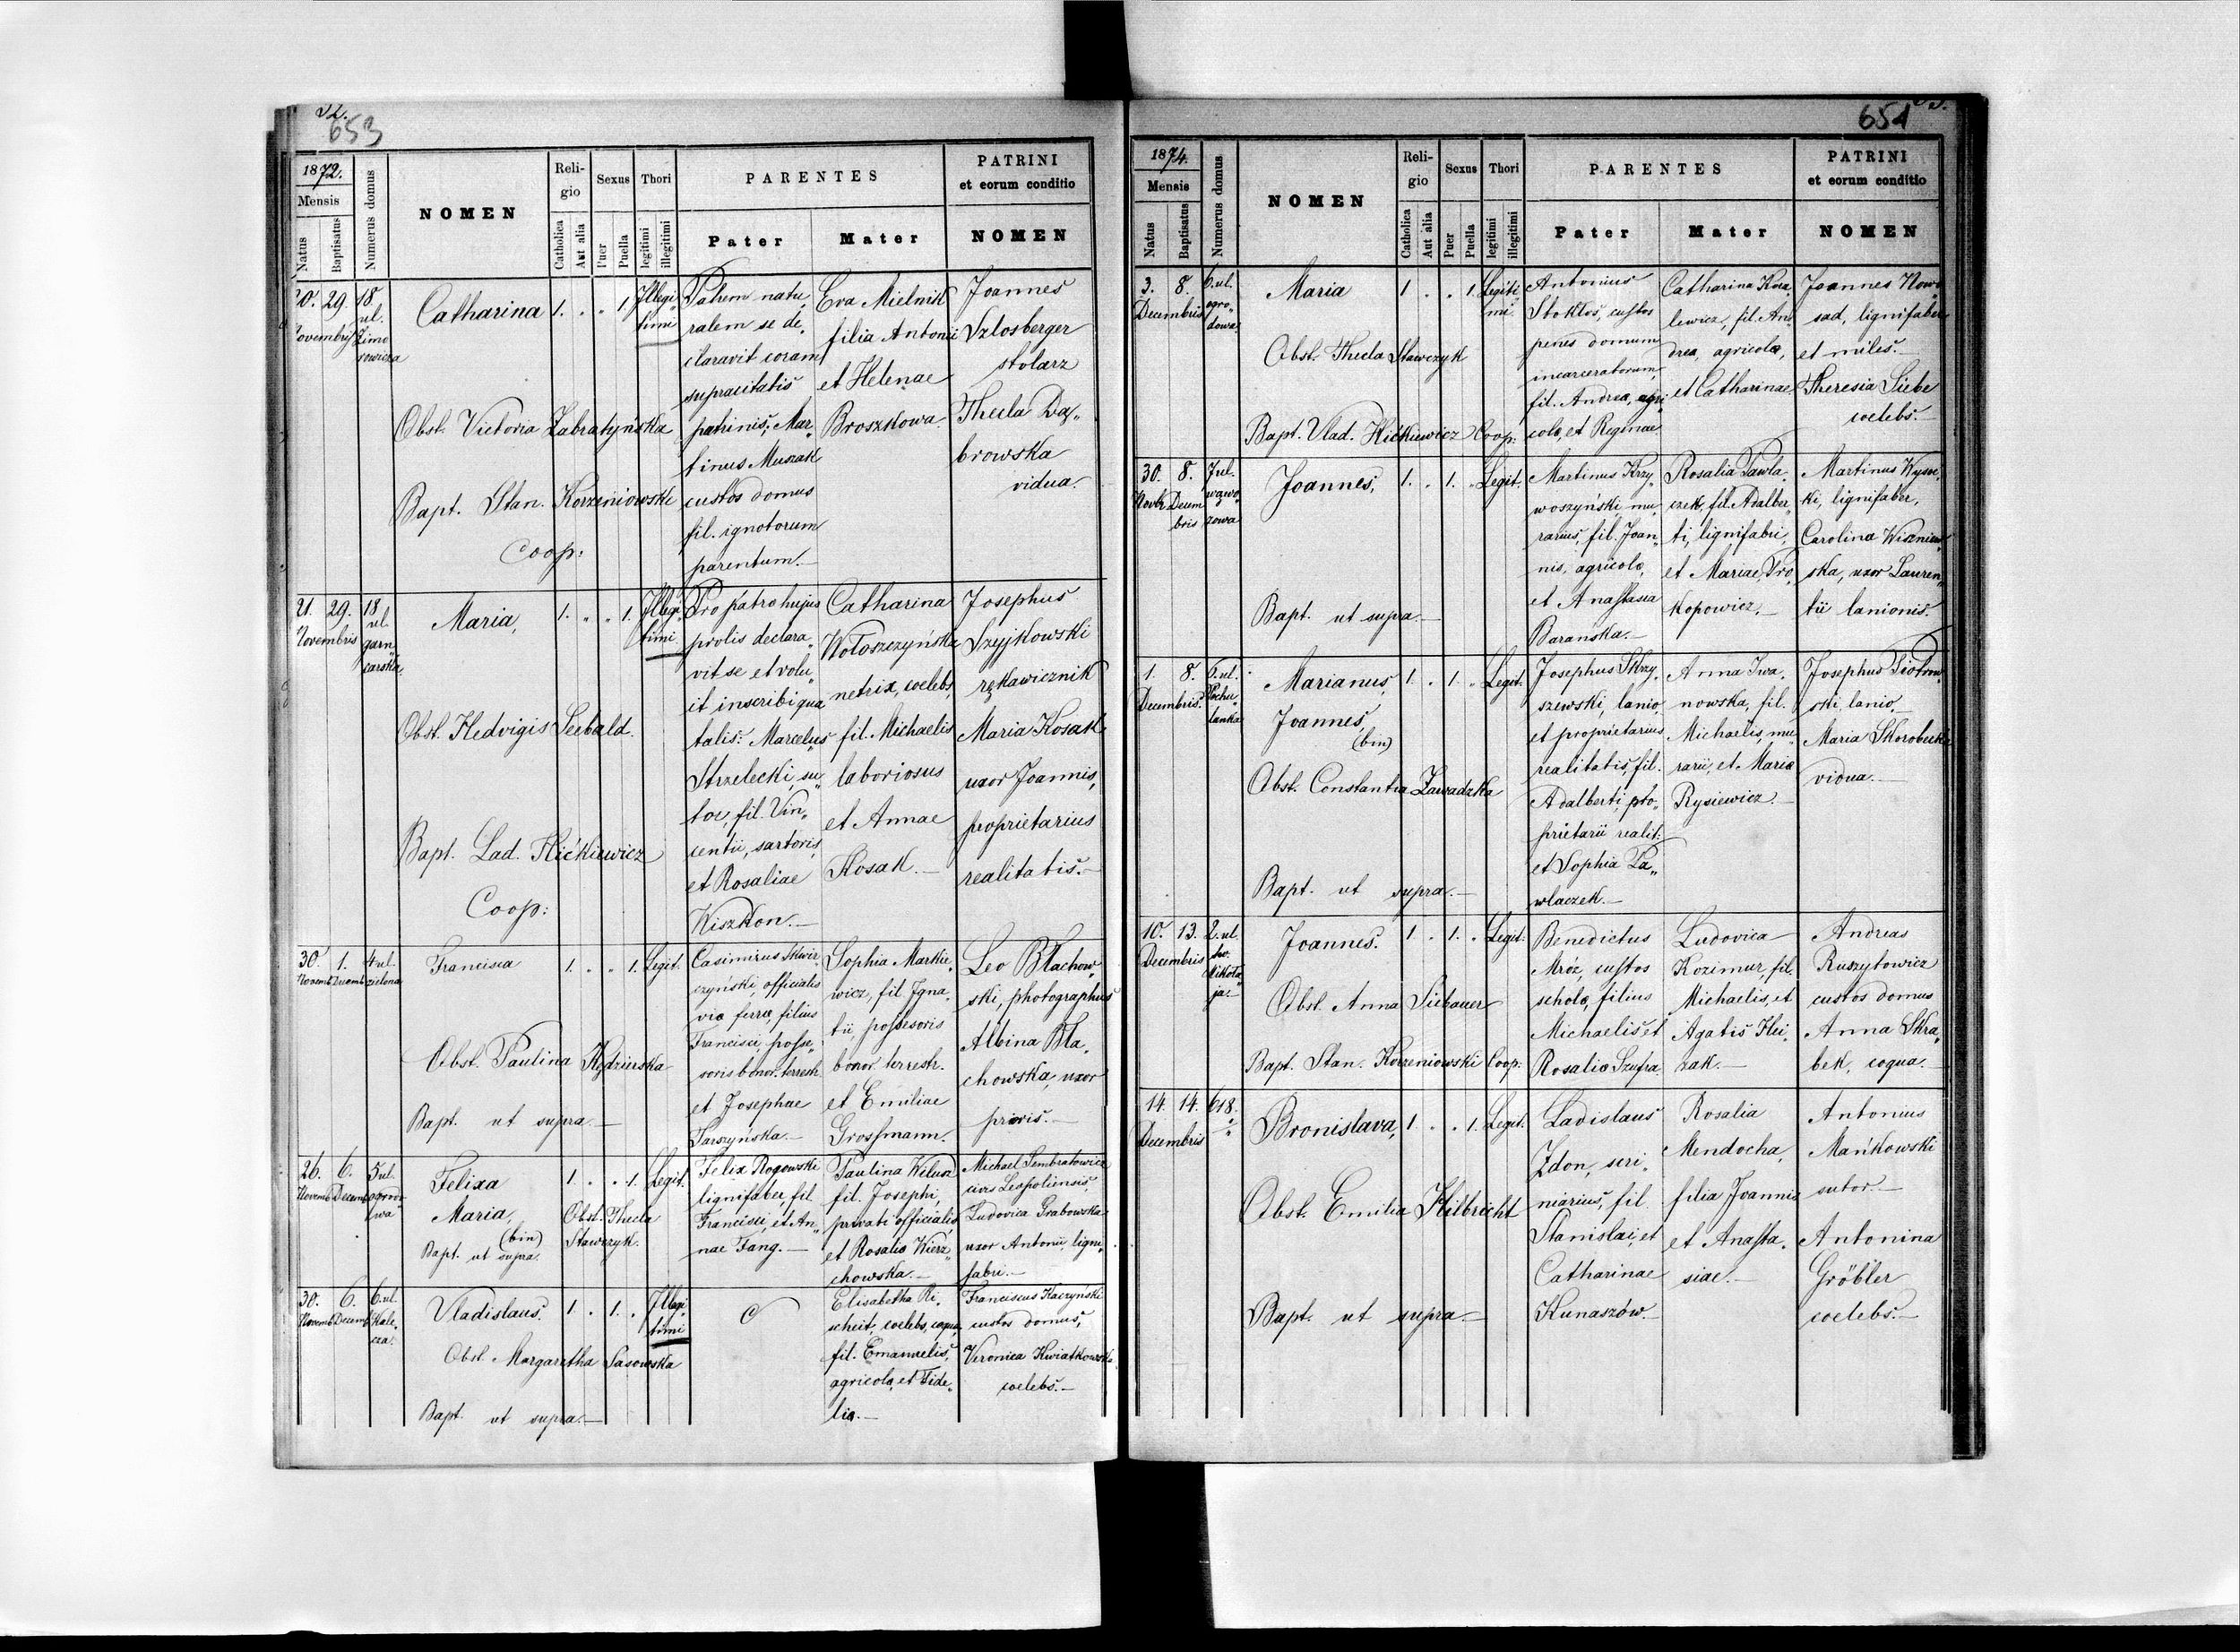 653
1872.
Mensis
Natus
Baptisatus
Numerus domus
NOMEN
Reli-
gio
Catholica
Aut alia
Sexus
Puer
Puella
Thori
legitimi
illegitimi
PARENTES
Pater
Mater
PATRINI
et eorum conditio
NOMEN
29.
18
ul.
Catharina
1. " " 1
Illegi„
timi
Obst. Victoria Zabratyńska
Bapt. Stan. Korzeniowski
Coop:
Patrem natu„
ralem se de„
claravit coram
supracitatis
patrinis, Mar„
tinus Muszak
custos domus
fil. ignotorum
parentum.—
Eva Mielnik
filia Antonii
et Helenae
Broszkowa.
Joannes
Szlosberger
stolarz
Thecla Dą„
browska
vidua.
21. 29.
Novembris
18
ul.
garn„
carska,
Maria,
1. " " 1.
Illegi„
timi
Obst. Hedvigis Seebald.
Bapt. Lad. Hićkiewicz
Coop:
Pro patre hujus
prolis declara„
vit se et volu„
it inscribi qua
talis: Marcelus
Strzelecki, su„
tor, fil. Vin„
centii, sartoris,
et Rosaliae
Kiszkon.—
Catharina
Wołoszczyńska
netrix, coelebs,
fil. Michaelis
laboriosus
et Annae
Kosak.—
Josephus
Szyjkowski
rękawicznik
Maria Kosak
uxor Joannis,
proprietarius
realitatis.—
30. 1.
Novemb Decemb
4 ul.
zielona
Francisca
1. " " 1.
Legit.
Obst. Paulina Kędzierska
Bapt. ut supra.—
Casimirus Skwir„
czyński, officialis
viae ferreae, filius
Francisci, posse„
soris bonor. terrestr.
et Josephae
Tarszyńska.—
Sophia Markie„
wicz, fil. Igna„
tii, possesoris
bonor. terrestr.
et Emiliae
Grossmann.
Leo Błachow„
ski, photographus
Albina Bła„
chowska, uxor
prioris.—
26. 6.
Novemb Decemb
5 ul.
Felixa
Maria,
(bin)
1. " " 1.
Legit.
Obst. Thecla
Stawczyk.
Bapt. ut supra.
Felix Rogowski
lignifaber, fil.
Francisci, et An„
nae Fang.—
Paulina Welusz
fil. Josephi,
privati officialis
et Rosalia Wierz„
chowska.—
Michael Sembratowicz
civis Leopoliensis,
Ludovica Grabowska
uxor Antonii, ligni„
fabri.—
30. 6.
Novemb Decemb
6. ul.
Kale„
cza.
Vladislaus.
1. " 1. "
Illegi„
timi
Obst. Margaretha Sasowska
Bapt. ut supra.—
Elisabetha Ri„
scheit, coelebs, coqua,
fil. Emanuelis,
agricola, et Fide„
lia.—
Franciscus Kaczyński
custos domus,
Veronica Kwiatkowska
coelebs.—
654
1874.
Mensis
Natus
Baptisatus
Numerus domus
NOMEN
Reli-
gio
Catholica
Aut alia
Sexus
Puer
Puella
Thori
legitimi
illegitimi
PARENTES
Pater
Mater
PATRINI
et eorum conditio
NOMEN
3. 8.
Decembris
6. ul.
ogro„
dowa
Maria
1 " " 1.
Legiti„
mi
Obst. Thecla Stawczyk
Bapt. Vlad. Hićkiewicz Coop:
Antonius
Stokłos, custos
penes domum
incarceratorum,
fil. Andrea, agri„
cola, et Reginae.
Catharina Kova„
lewicz, fil. An„
drea, agricola,
et Catharinae.
Joannes Nowo„
sad, lignifaber
et miles.—
Theresia Siebe
coelebs.—
30. 8.
Novbr. Decem
bris
7 ul.
wąwo„
zowa
Joannes,
1. " 1. "
Legit.
Bapt. ut supra.—
Martinus Krzy„
woszyński, mu„
rarius, fil. Joan„
nis, agricola,
et Anastasia
Barańska.—
Rosalia Pawla„
czek, fil. Adalber„
ti, lignifabri,
et Mariae, Pro„
kopowicz.—
Martinus Wysoc„
ki, lignifaber,
Carolina Wiśniew„
ska, uxor Lauren„
tii lanionis.
1. 8.
Decembris.
6. ul.
Pochu„
lanka
Marianus,
Joannes,
(bin)
1. " 1. "
Legit.
Obst. Constantia Zawadzka
Bapt. ut supra.—
Josephus Skrzy„
szewski, lanio,
et proprietarius
realitatis, fil.
Adalberti, pro„
prietarii realit:
et Sophia Pa„
wlaczek.—
Anna Iwa„
nowska, fil.
Michaelis, mu„
rarii, et Maria
Rysiewicz.—
Josephus Piotrow„
ski, lanio,
Maria Skorobecka
vidua.—
10. 13.
Decembris
2. ul.
św.
Mikoła„
ja.—
Joannes.
1 " 1. "
Legit.
Obst. Anna Siebauer
Bapt. Stan. Korzeniowski Coop:
Benedictus
Mróz, custos
schola, filius
Michaelis et
Rosalia Szufra
Ludovica
Kozimur, fil.
Michaelis, et
Agatis Hei„
zak.—
Andreas
Ruszytowicz
custos domus
Anna Skra„
bek, coqua.—
14. 14.
Decembris
618.
Bronislava,
1 " " 1.
Legit.
Obst. Emilia Hilbricht
Bapt. ut supra.—
Ladislaus
Zdon, scri„
niarius, fil.
Stanislai, et
Catharinae
Kunaszów.—
Rosalia
Mendocha,
filia Joannis
et Anasta„
siae.—
Antonius
Mańkowski
sutor.—
Antonina
Gröbler
coelebs.—